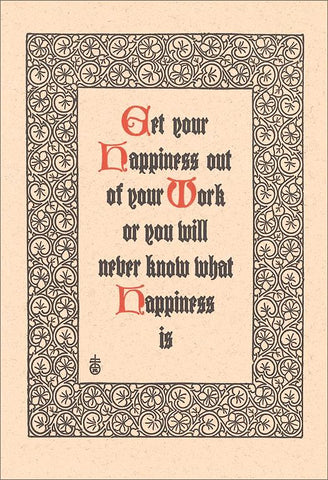 Get your
Happiness out
of your Work
or you will
never know what
Happiness
is